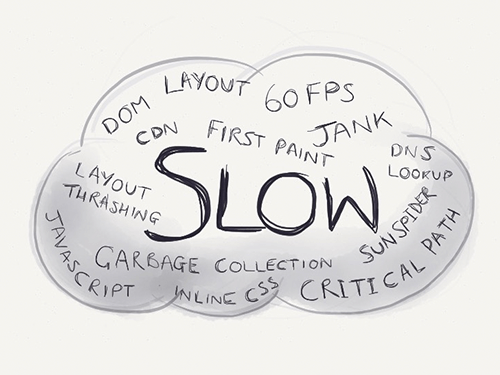 DOM LAYOUT 60FPS
CDN FIRST PAINT JANK
DNS
LOOKUP
LAYOUT
THRASHING
SLOW
SUNSPIDER
JAVASCRIPT
GARBAGE COLLECTION
INLINE CSS
CRITICAL PATH